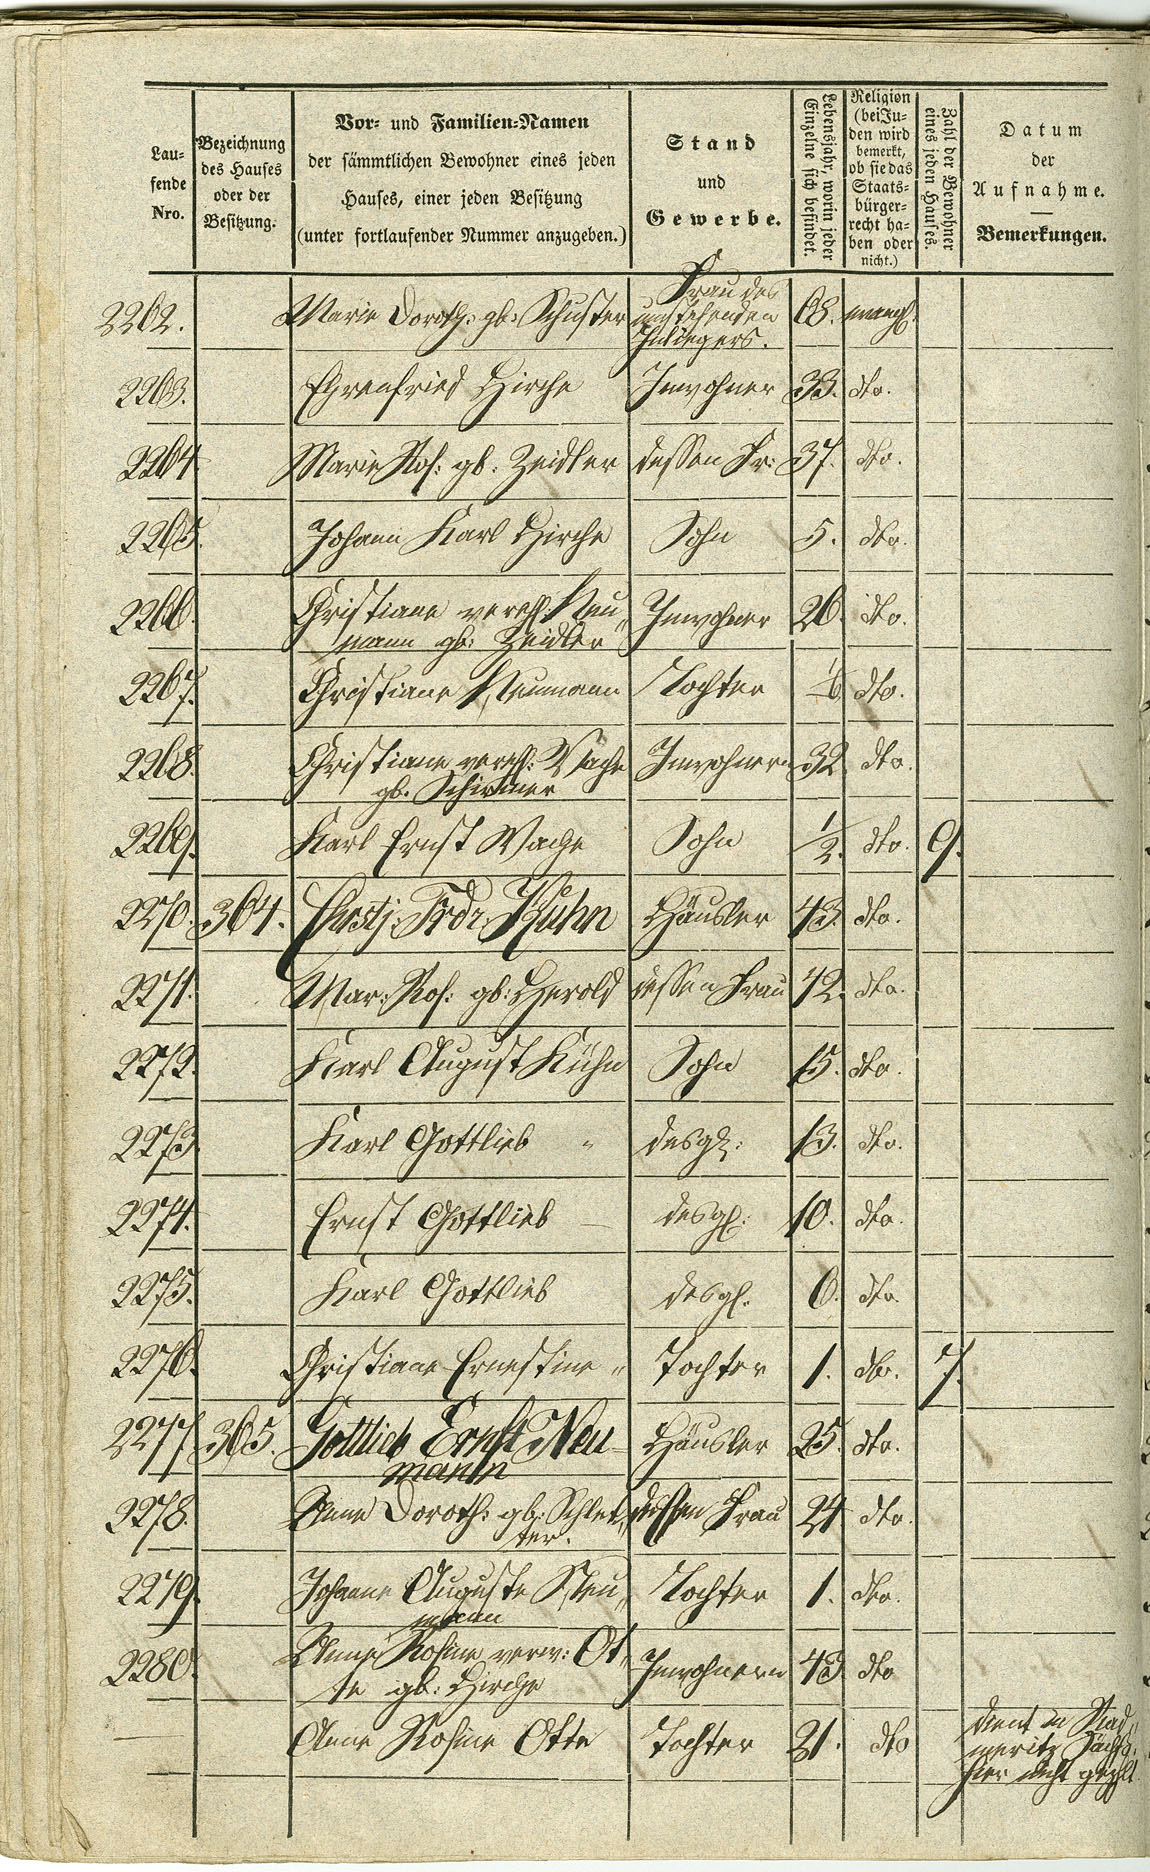 Lau-
fende
Nro.
Bezeichnung
des Hauses
oder der
Besitzung.
Vor- und Familien-Namen
der sämmtlichen Bewohner eines jeden
Hauses, einer jeden Besitzung
(unter fortlaufender Nummer anzugeben.)
Stand
und
Gewerbe.
Lebensjahr, worin jeder
Einzelne sich befindet.
Religion
(bei Ju-
den wird
bemerkt,
ob sie das
Staats-
bürger-
recht ha-
ben oder
nicht.)
Zahl der Bewohner
eines jeden Hauses.
Datum
der
Aufnahme.
Bemerkungen.
Frau des
2262. Marie Doroth: gb: Schuster umstehenden 68. evangl.
Inliegers.
2263. Ehrenfried Hirche Inwohner 33. dto.
2264 Marie Ros: gb. Zeidler dessen Fr: 37. dto.
2265. Johann Karl Hirche Sohn 5. dto.
2266. Christiane verehl: Neu„ Inwohner 26. dto.
mann gb: Zeidler
2267. Christiane Neumann Tochter dto.
2268. Christiane verehl: Wache Inwohnern 32. dto.
gb. Schirmer
2269. Karl Ernst Wache Sohn 1/2. dto. 9.
2270. 364. Christj: Frdr Kühn Häusler 43. dto.
2271. Mar: Ros: gb: Herold dessen Frau 42. dto.
2272. Karl August Kühn Sohn 15. dto.
2273. Karl Gottlieb „ desgl: 13. dto.
2274. Ernst Gottlieb — desgl: 10. dto.
2275. Karl Gottlieb desgl. 6. dto.
2276. Christiane Ernestine „ Tochter 1. dto. 7.
2277. 365. Gottlieb Ernst Neu- Häusler 25. dto.
mann
2278. Anne Doroth: gb: Schlet„ dessen Frau 24. dto.
ter.
2279. Johanne Auguste Neu„ Tochter 1. dto.
mann
2280. Anne Rosine verw: Ot„ Inwohnern 43. dto
te gb: Hirche
— Anne Rosine Otte Tochter 21. dto
dient in Rad„
meritz Sächs:
hier nicht gezhlt